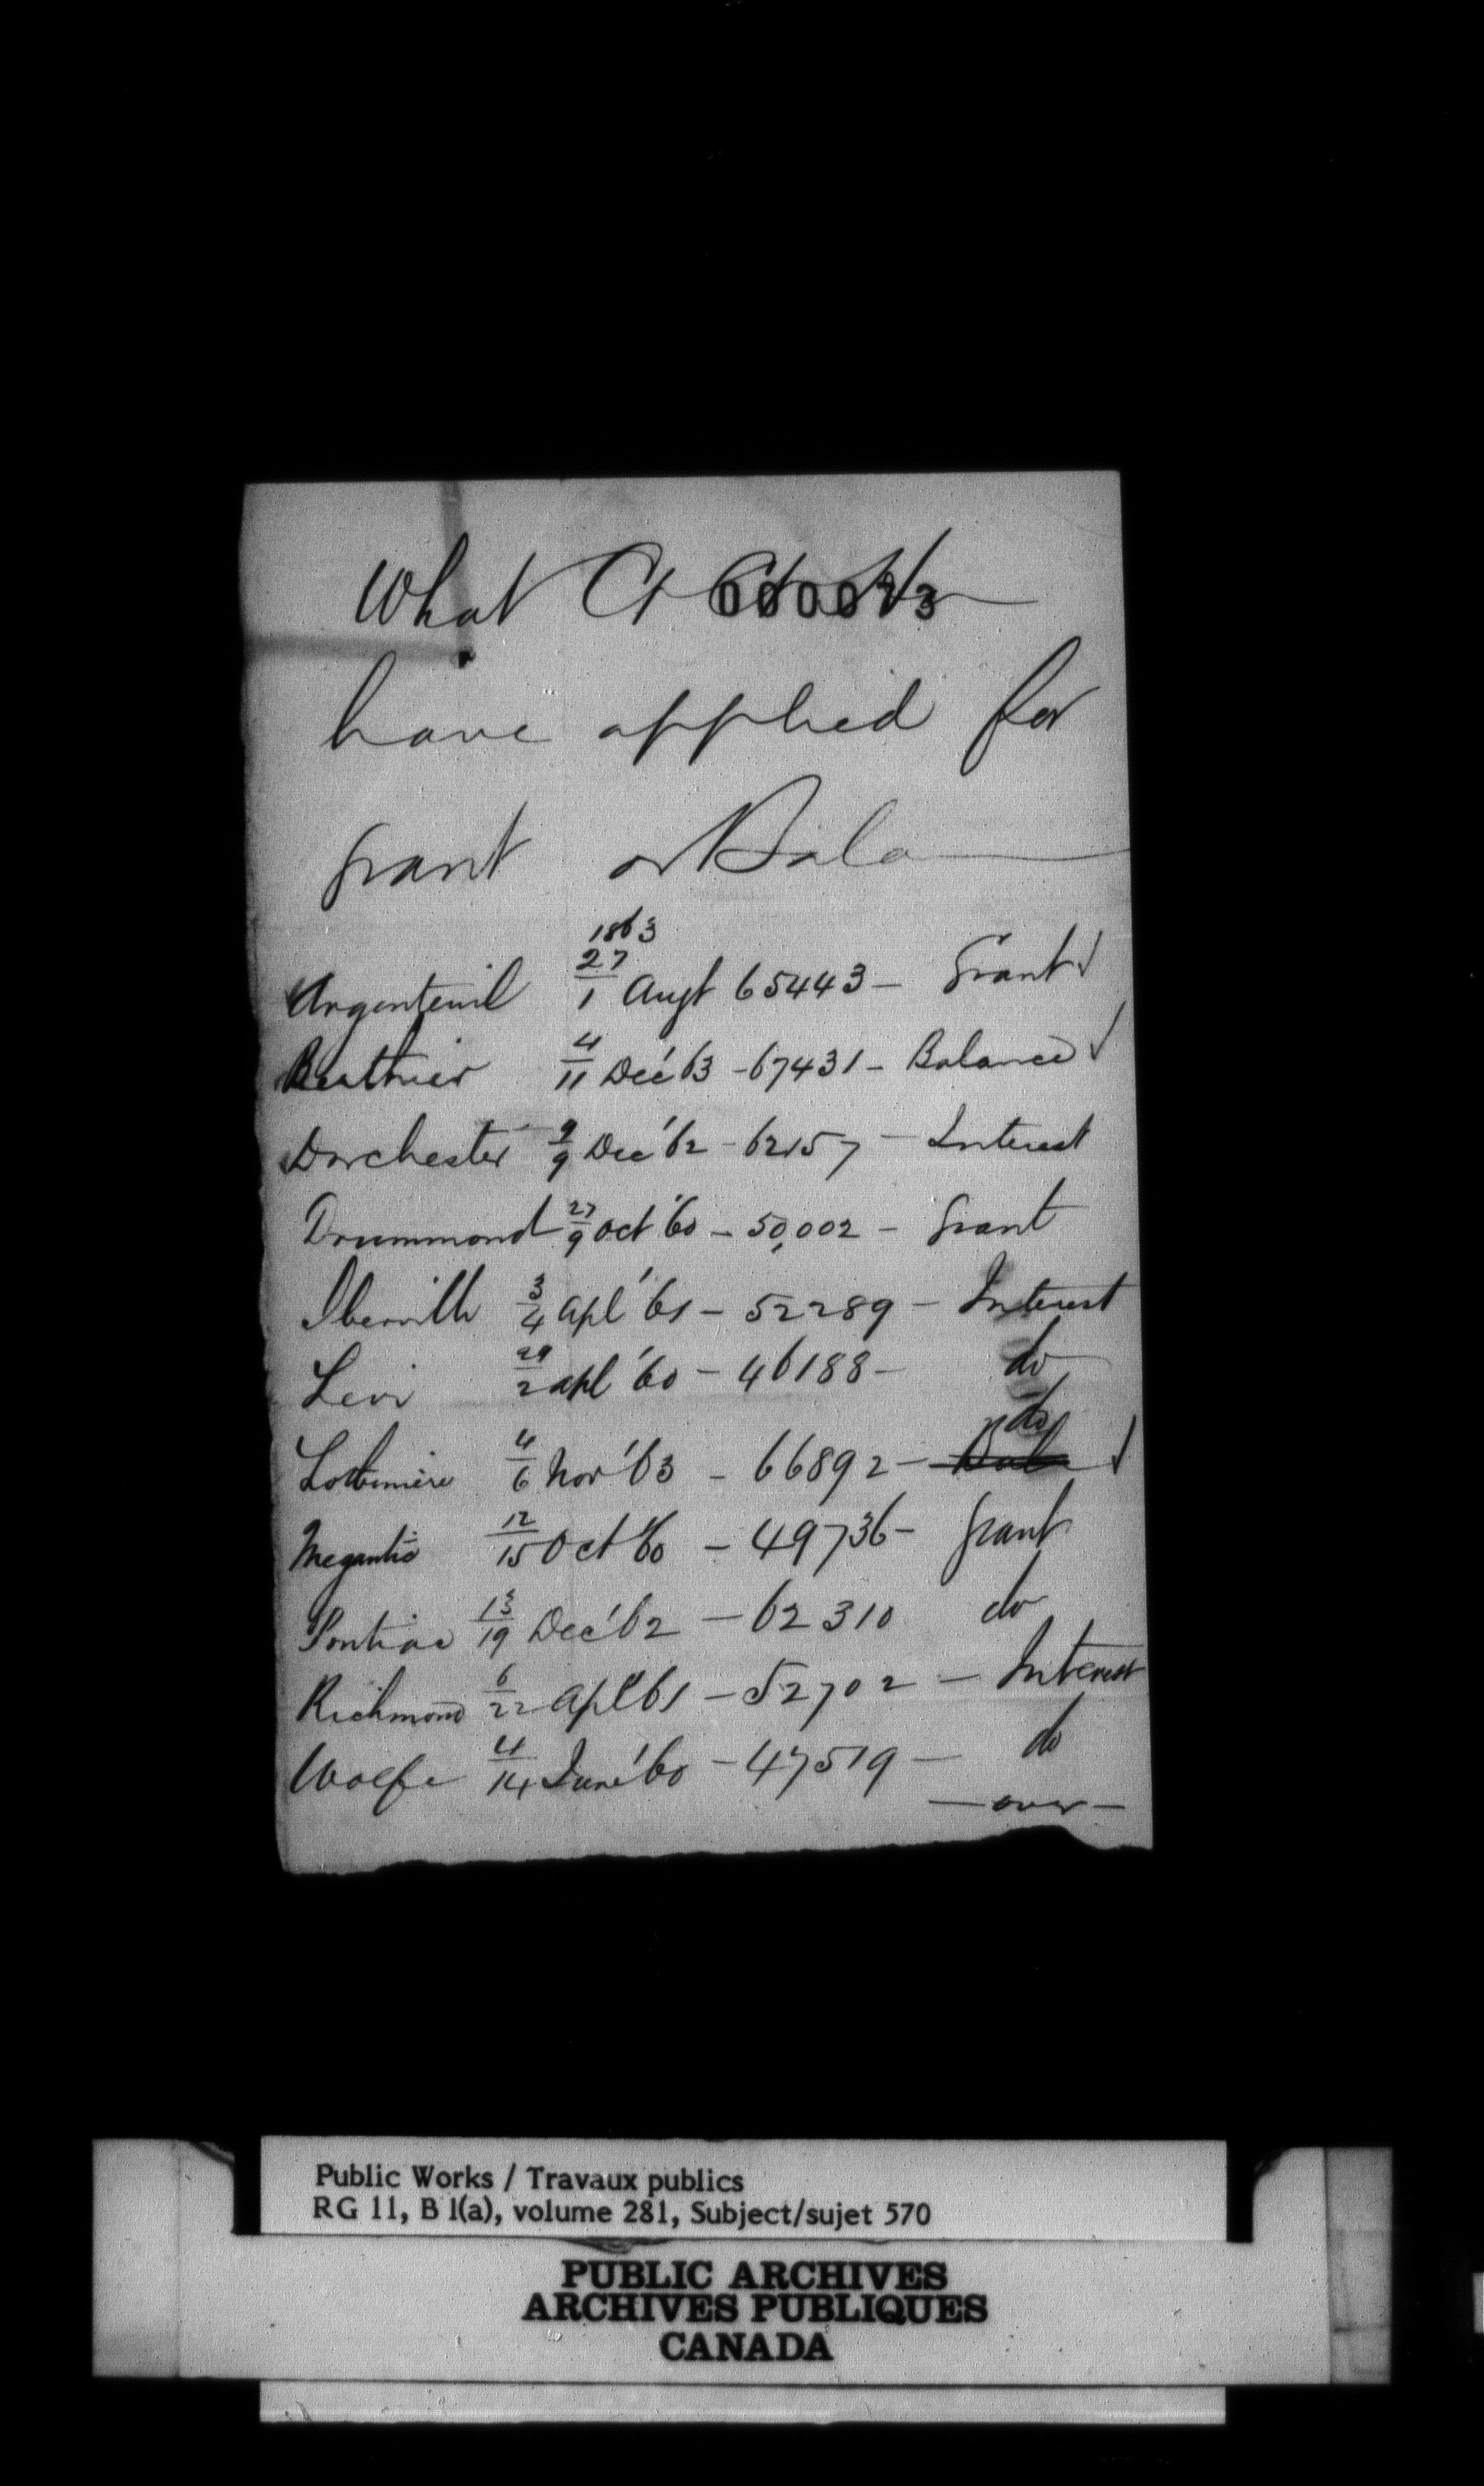 What Ct
000073
have applied for
grant or Bala
1863
Argenteuil 27/1 Augt 65443 – Grant ✓
Berthier 4/11 Dec '63 – 67431 – Balance ✓
Dorchester 9/9 Dec '62 – 62157 – Interest
Drummond 27/9 Oct '60 – 50,002 – Grant
Iberville 3/4 Apl '61 – 52289 – Interest
Levi 29/2 Apl '60 – 46188 – do
do
Lotbiniere 4/6 Nov '63 – 66892 – ✓
Megantic 12/15 Oct '60 – 49736 – Grant
Pontiac 13/19 Dec '62 – 62310 do
Richmond 6/22 Apl '61 – 52702 – Interest
Wolfe 4/14 June '60 – 47519 – do
– over –
Public Works / Travaux publics
RG 11, B 1(a), volume 281, Subject/sujet 570
PUBLIC ARCHIVES
ARCHIVES PUBLIQUES
CANADA